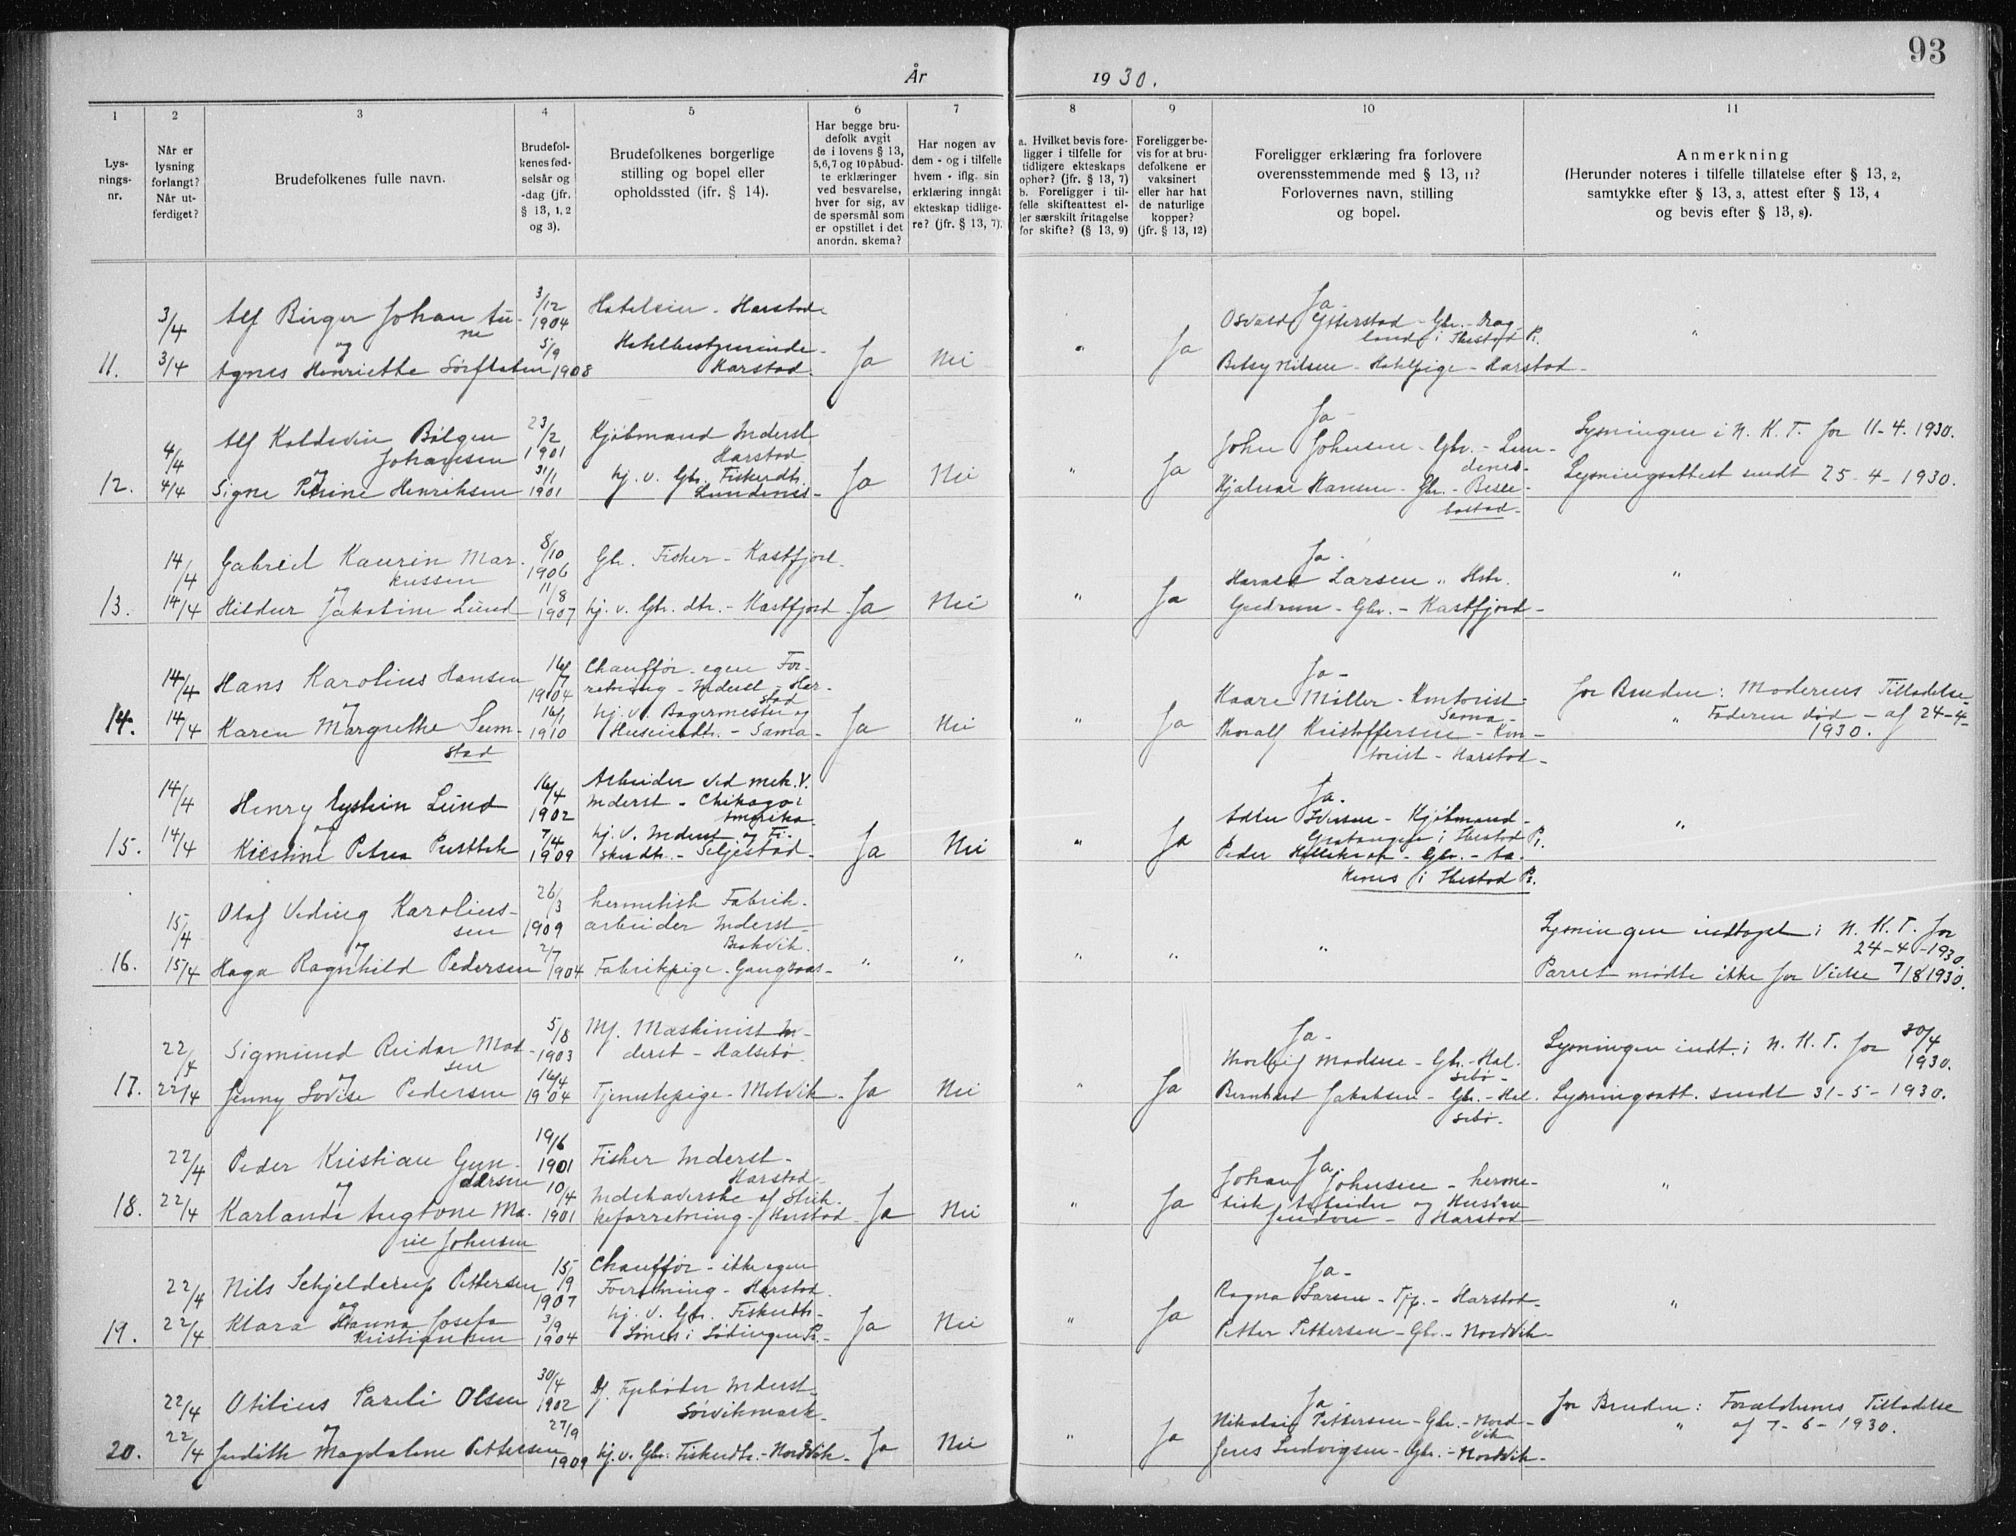 93
År 1930.
1 2 3 4 5 6 7 8 9 10 11
Lys-
nings-
nr.
Når er
lysning
forlangt?
Når ut-
ferdiget?
Brudefolkenes fulle navn.
Brudefol-
kenes fød-
selsår og
-dag (jfr.
§ 13, 1, 2
og 3).
Brudefolkenes borgerlige
stilling og bopel eller
opholdssted (jfr. § 14).
Har begge bru-
defolk avgit
de i lovens § 13,
5, 6, 7 og 10 påbud-
te erklæringer
ved besvarelse,
hver for sig, av
de spørsmål som
er opstillet i det
anordn. skema?
Har nogen av
dem - og i tilfelle
hvem - iflg. sin
erklæring inngått
ekteskap tidlige-
re? (jfr. § 13, 7).
a. Hvilket bevis fore-
ligger i tilfelle for
tidligere ekteskaps
ophør? (jfr. § 13, 7)
b. Foreligger i til-
felle skifteattest el-
ler særskilt fritagelse
for skifte? (§ 13, 9)
Foreligger be-
vis for at bru-
defolkene er
vaksinert
eller har hat
de naturlige
kopper?
(jfr. § 13, 12)
Foreligger erklæring fra forlovere
overensstemmende med § 13, 11?
Forlovernes navn, stilling
og bopel.
Anmerkning
(Herunder noteres i tilfelle tillatelse efter § 13, 2,
samtykke efter § 13, 3, attest efter § 13, 4
og bevis efter § 13, 8).
11. 3/4 3/4
Alf Birger Johan Au-
ne
og
Agnes Henriette
3/12
1904
5/9
1908
Harstad
Hotelbestyrerinde
Harstad.
Ja Nei " Ja
Ja -
Osvald Ytterstad - Gbr. - Drag-
land i Ibestad P.
Betsy Nilsen - Hotelpige - Harstad -
"
12. 4/4 4/4
Alf Koldevin Bølgen
Johansen
og
Signe Petrine Henriksen
23/2
1901
31/1
1901
Kjøbmand Inderst
Harstad.
hj. v. Gbr. Fiskerdtr.
Lundenes -
Ja Nei " Ja
Ja -
John Johnsen - Gbr. - Lun-
denes -
Hjalmar Hansen - Gbr. - Besse-
bostad -
Lysningen i N. K. T. for 11-4-1930.
Lysningsattest sendt 25-4-1930.
13. 14/4 14/4
Gabriel Kaurin Mar-
kussen
og
Hildur Jakobine Lund
8/10
1906
11/8
1907
Gbr. Fisker - Kastfjord.
hj. v. Gbr. dtr. - Kastfjord.
Ja Nei " Ja
Ja -
Harald Larsen " Hstr.
Gudrun - Gbr. - Kastfjord -
"
14. 14/4 14/4
Hans Karolius Hansen
og
Karen Margrethe Sem-
stad
16/7
1904
16/1
1910
Chauffør - egen For-
retning - Inderst - Har-
stad
hj. v. Bagermester og
Huseierdtr. - Sama -
Ja Nei " Ja
Ja -
Kaare Møller - Kontorist
Sama -
Thoralf Kristoffersen - Kon-
torist - Harstad -
for Bruden: Moderens Tilladelse
" Faderen død - af 24-4-
1930.
15. 14/4 14/4
Henry Eystein Lund
og
Kirstine Petrea
16/4
1902
7/4
1909
Arbeider ved mek. V.
Inderst - Chikago i
Amerika
hj. v. Inderst og Fi-
skerdtr. - Seljestad -
Ja Nei " Ja
Ja -
Adler Iversen - Kjøbmand -
Gratangen i Ibestad P.
Peder - Gbr. - Aa-
i Ibestad P.
"
16. 15/4 15/4
Olaf Veding Karolius-
sen
og
Haga Ragnhild Pedersen
26/3
1909
2/7
1904
hermetisk Fabrik-
arbeider Inderst -
Brokvik.
Fabrikpige - Gangsaas -
" " " " "
Lysningen indtaget i N. K. T. for
24-4-1930.
Parret mødte ikke for Vielse 7/8 1930.
17. 22/4 22/4
Sigmund Reidar Mad-
sen
og
Jenny Lovise Pedersen
5/8
1903
16/4
1904
Mf. Maskinist In-
derst - Halsebø.
Tjenestepige - Melvik.
Ja Nei " Ja
Ja -
Thorleif Madsen - Gbr. - Hal-
sebø -
Bernhard Jakobsen - Gbr. - Hal-
sebø -
Lysningen indt. i N. K. T. for 30/4
1930.
Lysningsatt. sendt 31-5-1930.
18. 22/4 22/4
Peder Kristian Gun-
dersen
og
Karlanda Augtone Ma-
rie Johnsen
19/6
1901
10/4
1901
Fisker Inderst -
Harstad -
Indehaverske af Strik-
keforretning - Harstad.
Ja Nei " Ja
Ja -
Johan Johnsen - herme-
tisk Arbeider og Hustru
- Harstad
"
19. 22/4 22/4
Nils Schjelderup Pettersen
og
Klara Hanna Josefa
Kristiansen
15/9
1907
3/9
1904
Chauffør - ikke egen
Forretning - Harstad.
hj. v. Gbr. Fiskerdtr.
i Lødingen P. -
Ja Nei " Ja
Ja -
Ragna Larsen - Tjp. - Harstad -
Petter Pettersen - Gbr. - Nordvik -
"
20. 22/4 22/4
Otilius Pareli Olsen
og
Judith Magdalene Pettersen
30/4
1902
27/9
1909
Inderst -
Sørvikmark -
hj. v. Gbr. Fiskerdtr. - Nordvik -
Ja Nei " Ja
Ja -
Nikolai Pettersen - Gbr. - Nord-
vik
Jens Ludvigsen - Gbr. - Nordvik -
for Bruden: Forældrenes Tilladelse
" af 7-6-1930.